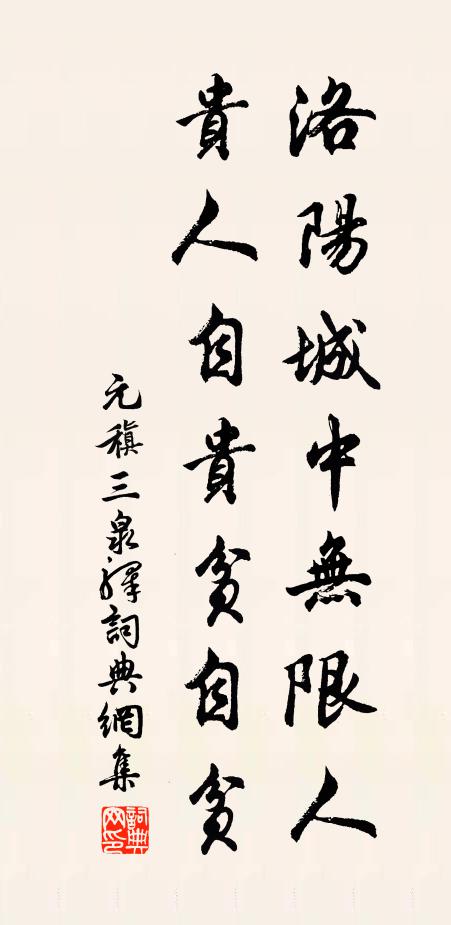 洛陽城中無限人
貴人自貴貧自貧
元稹三泉驛詞典網集
詞典網印